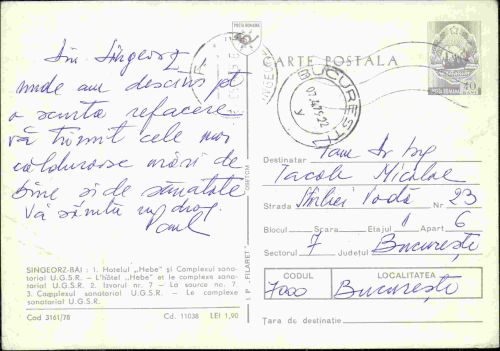 Din Sîngeorz
unde am descins pt
o scurtă refacere
vă trimit cele mai
călduroase urări de
bine și de sănătate
Vă sărută cu drag
Paul
SINGEORZ-BAI : 1. Hotelul „Hebe" și Complexul sana-
torial U.G.S.R. — L'hôtel „Hebe" et le complexe sana-
torial U.G.S.R. 2. Izvorul nr. 7 — La source no. 7.
3. Complexul sanatorial U.G.S.R. — Le complexe
sanatorial U.G.S.R.
Cod 3161/78 Cd. 11038 LEI 1,90
I. P. „FILARET"
POȘTA ROMANA
CARTE POȘTALA
POȘTA ROMANA 40 BANI
BUCUREȘTI
Destinatar
Iacob Nicolae
Strada Știrbei Vodă Nr 23
Blocul Scara Etajul Apart 6
Sectorul 7 Județul București
CODUL LOCALITATEA
7000 București
Țara de destinație